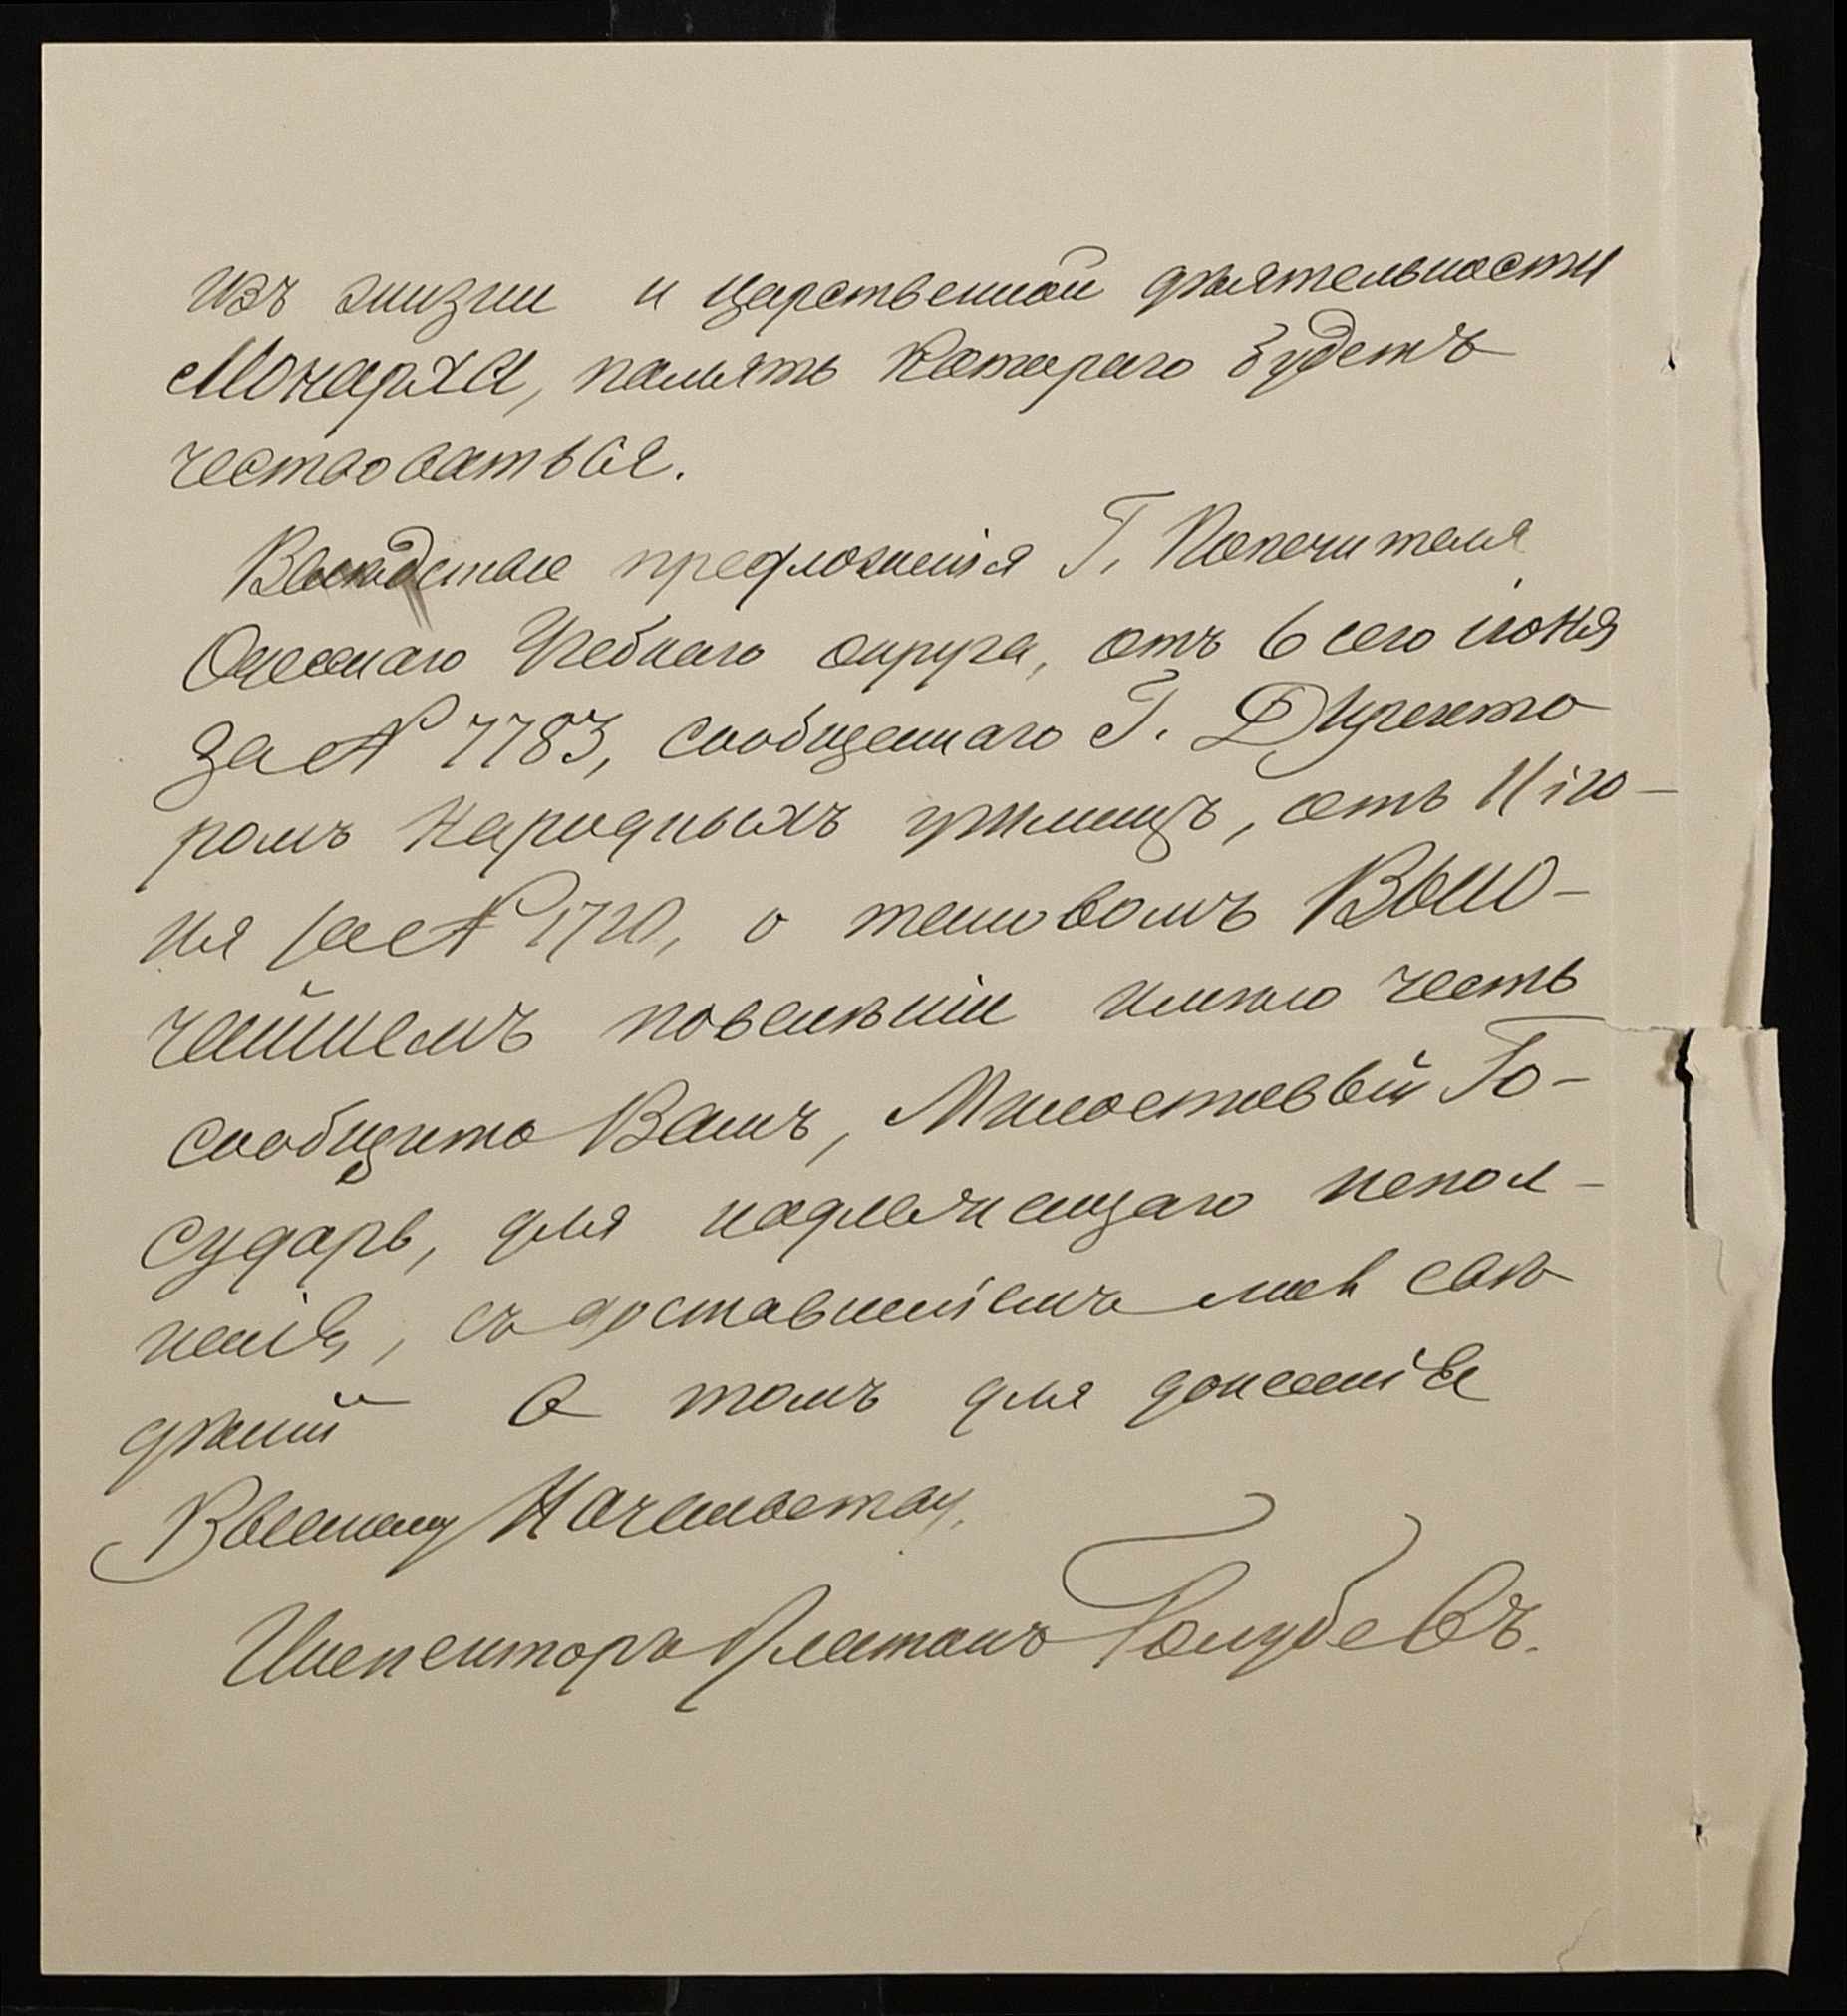 изъ жизни и царственной дѣятельности
Монарха, память котораго будетъ
чествоваться.
Вслѣдствіе предложенія Г. Попечителя
Одесскаго Учебнаго округа, отъ 6 сего іюня
за № 7783, сообщеннаго Г. Директо
ромъ Народныхъ училищъ, отъ 11 ію-
ня за № 1720, о таковомъ Высо-
чайшемъ повелѣніи имѣю честь
сообщить Вамъ, Милостивый Го-
сударь, для надлежащаго испол-
ненія, съ доставленіемъ мнѣ свѣ
дѣній о томъ для донесенія
Высшему Начальству.
Инспекторъ Платонъ Голубевъ.